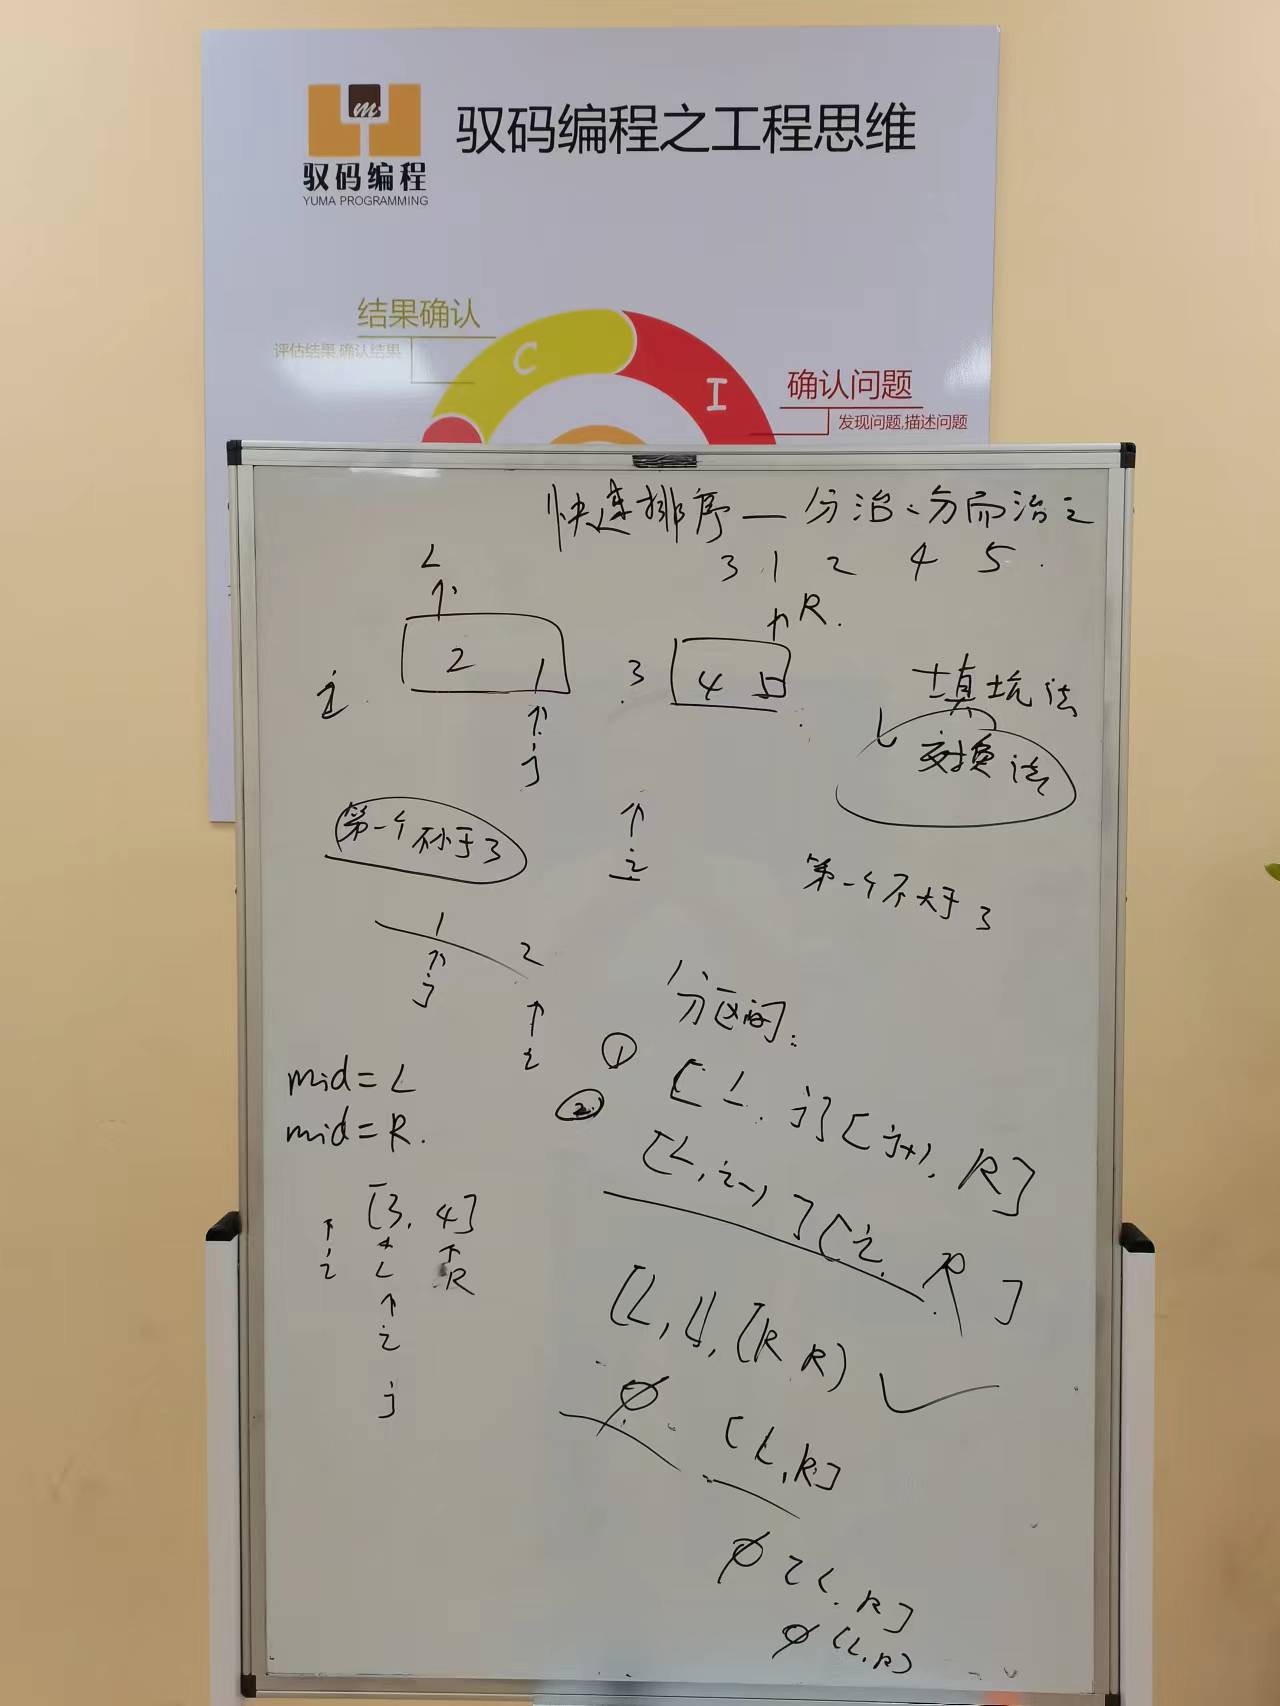 m
驭码编程
YUMA PROGRAMMING
驭码编程之工程思维
结果确认
评估结果,确认结果
C
I
确认问题
发现问题,描述问题
快速排序 — 分治、分而治之
3 1 2 4 5
L
R.
i 2 1 3 4 5
j
填坑法
交换法
i
第一个不小于3
第一个不大于3
1 2
j
i
分区间:
① [L, j] [j+1, R]
② [L, i-1] [i, R]
mid = L
mid = R.
[3, 4]
i L R
i
j
[L, L], [R R)
∅ [L, R]
∅ [L, R]
∅ (L, R)